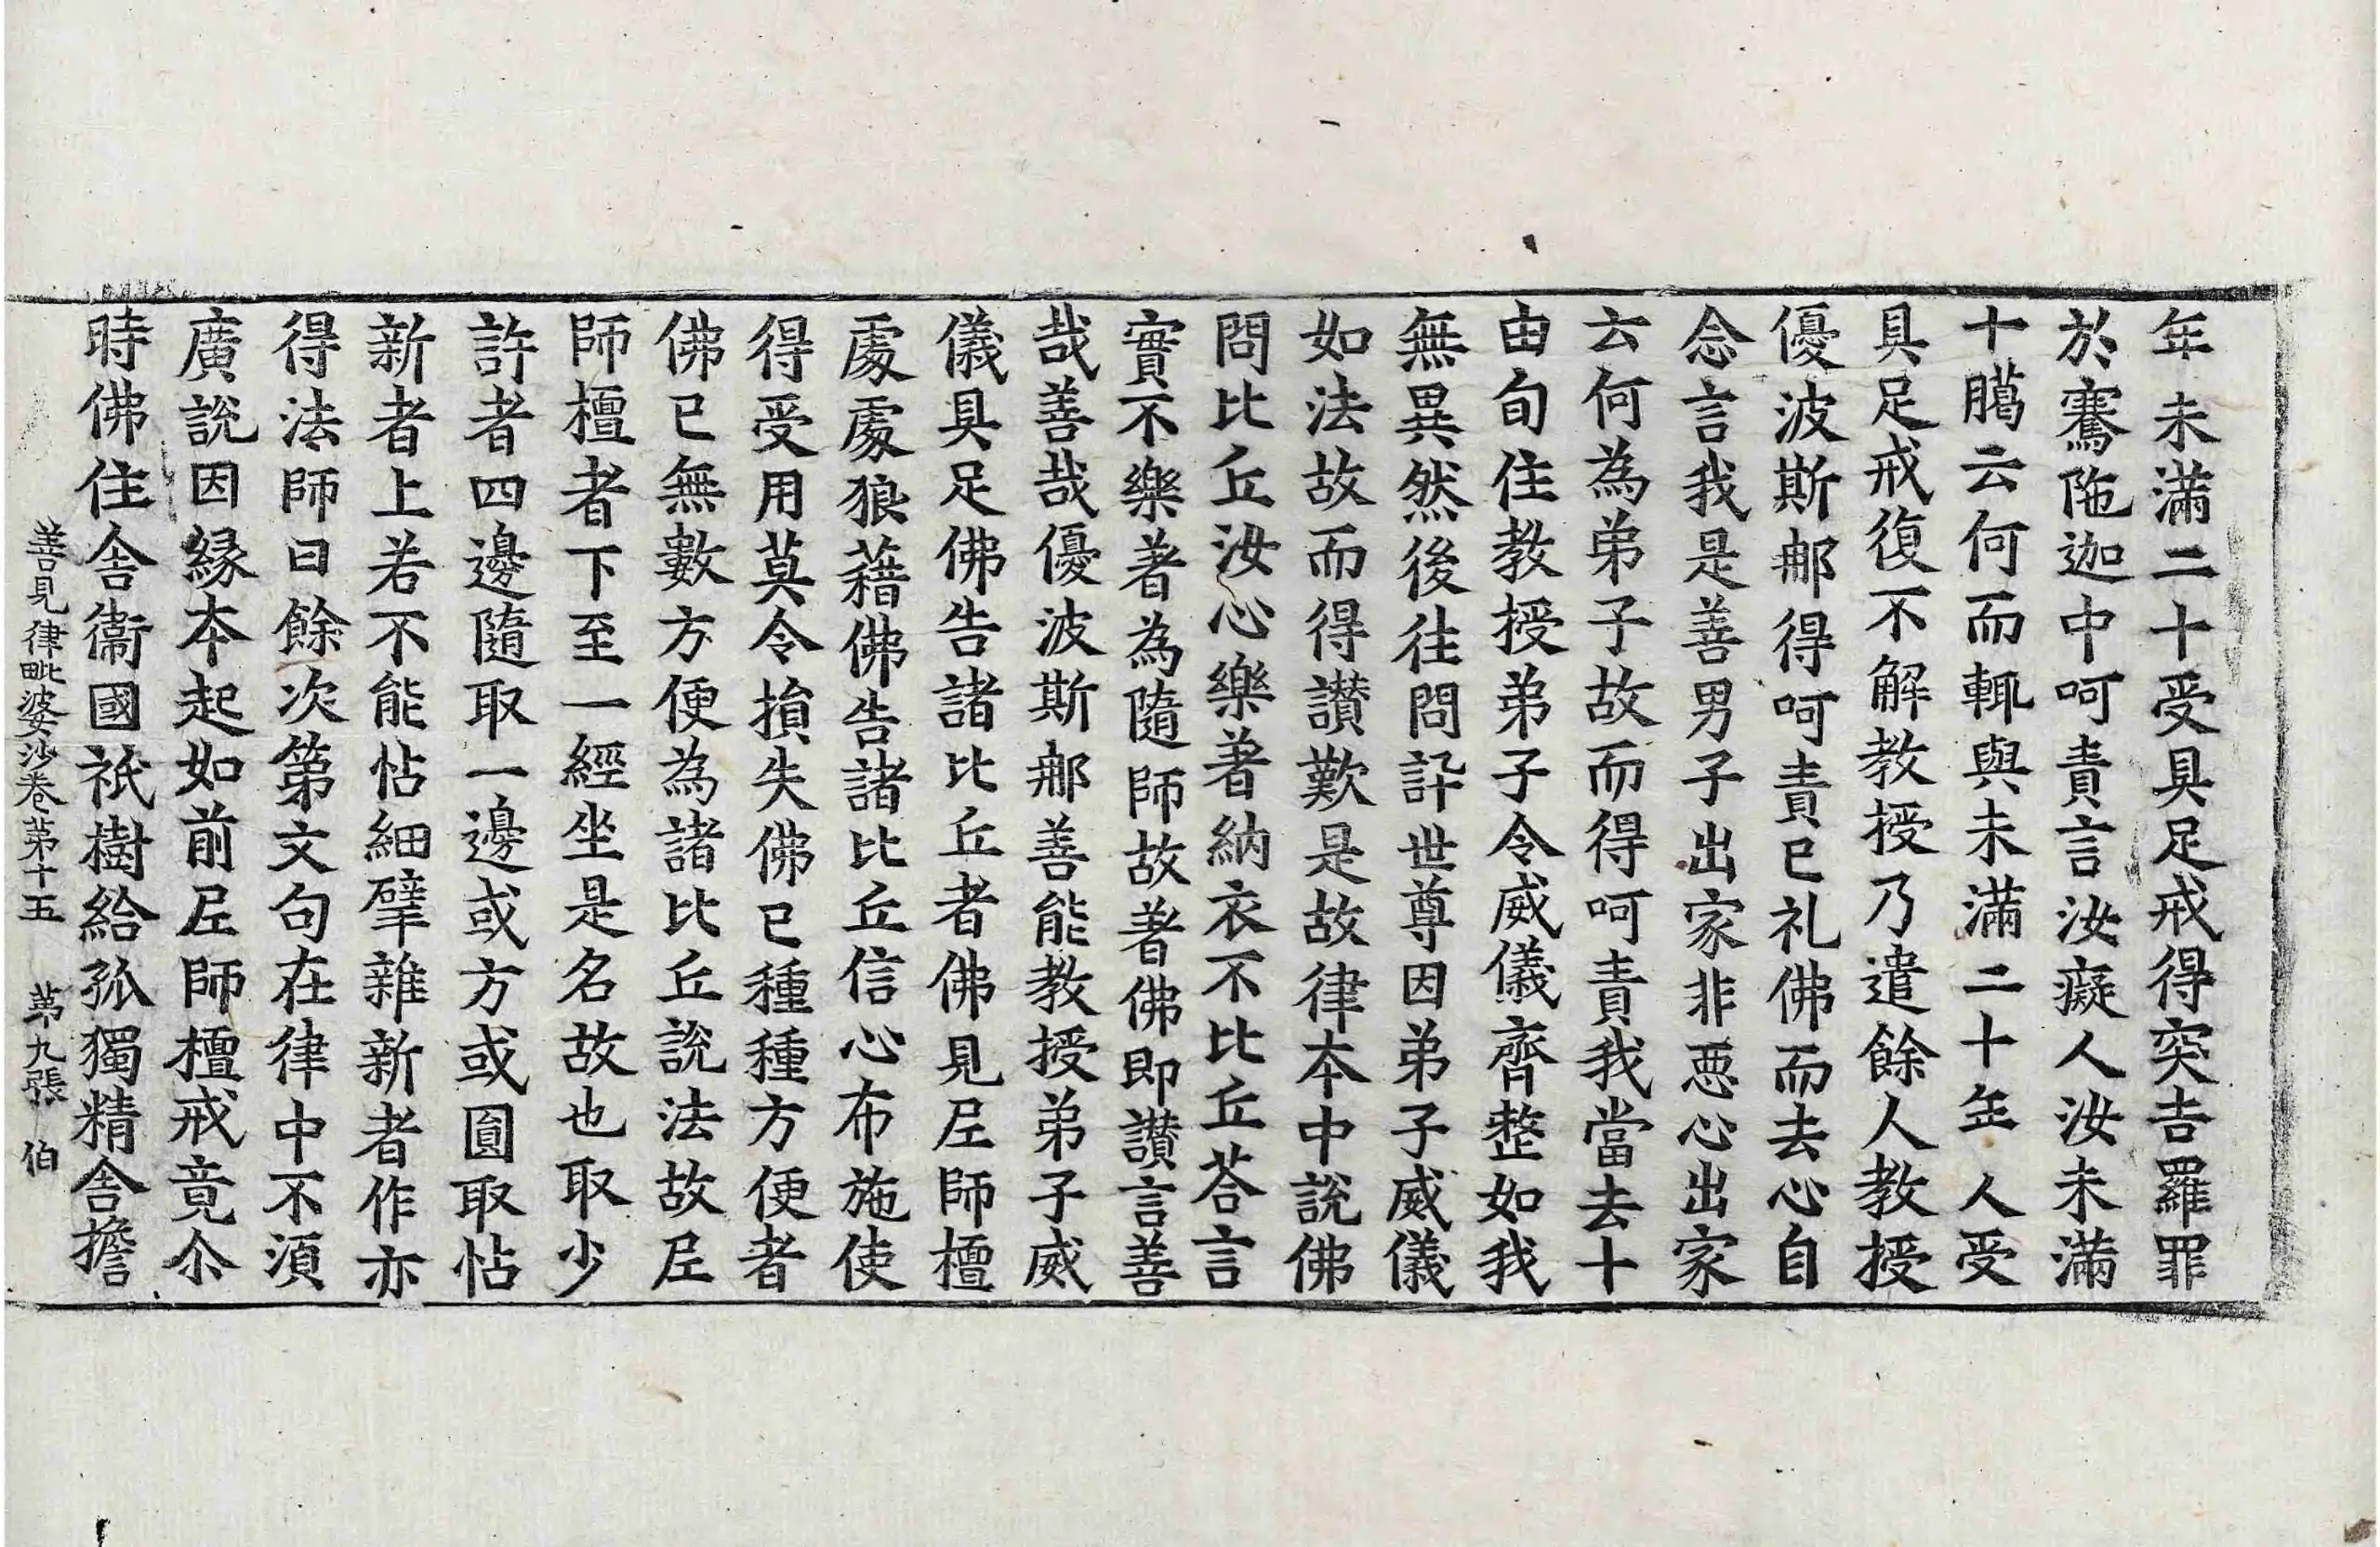 年未滿二十受具足戒得突吉羅罪
於騫陁迦中呵責言汝癡人汝未滿
十臈云何而輒與未滿二十年人受
具足戒復不解教授乃遣餘人教授
優波斯那得呵責已礼佛而去心自
念言我是善男子出家非惡心出家
云何為弟子故而得呵責我當去十
由旬住教授弟子令威儀齊整如我
無異然後往問訊世尊因弟子威儀
如法故而得讃歎是故律本中說佛
問比丘汝心樂著納衣不比丘荅言
實不樂著為隨師故著佛即讃言善
哉善哉優波斯那善能教授弟子威
儀具足佛告諸比丘者佛見尼師檀
處處狼藉佛告諸比丘信心布施使
得受用莫令損失佛已種種方便者
佛已無數方便為諸比丘說法故尼
師檀者下至一經坐是名故也取少
許者四邊隨取一邊或方或圓取帖
新者上若不能帖細擘雜新者作亦
得法師曰餘次第文句在律中不須
廣說因緣本起如前尼師檀戒竟尒
時佛住舍衛國祇樹給孤獨精舍擔
善見律毗婆沙卷苐十五 苐九張 伯